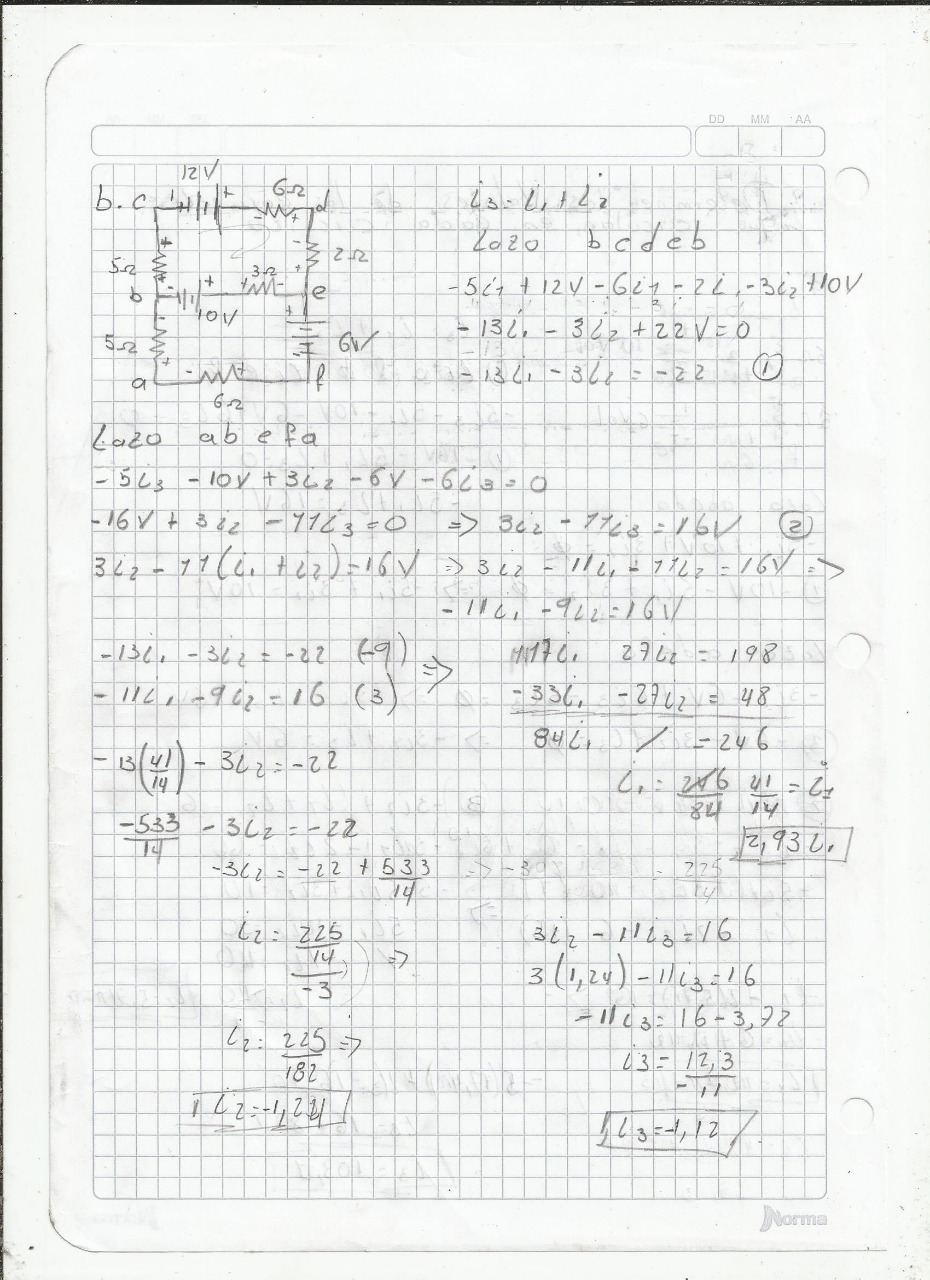 DD MM AA
12V
b. c 6Ω d
5Ω 2Ω
3Ω
b e
10V
5Ω 6V
a f
6Ω
i3 = i1 + i2
Lazo b c d e b
-5i1 + 12V - 6i1 - 2i1 - 3i2 + 10V
- 13i1 - 3i2 + 22V = 0
- 13i1 - 3i2 = -22 ①
Lazo a b e f a
- 5i3 - 10V + 3i2 - 6V - 6i3 = 0
-16V + 3i2 - 11i3 = 0 => 3i2 - 11i3 = 16V ②
3i2 - 11(i1 + i2) = 16V => 3i2 - 11i1 - 11i2 = 16V =>
- 11i1 - 9i2 = 16V
-13i1 - 3i2 = -22 (-9) =>
- 11i1 - 9i2 = 16 (3)
117i1 27i2 = 198
-33i1 - 27i2 = 48
84i1 / = 246
- 13(41/14) - 3i2 = -22
i1 = 246/84 41/14 = i1
2,93i1
-533/14 - 3i2 = -22
-3i2 = -22 + 533/14 => -3 = 225/14
i2 = 225/14/-3 =>
i2 = 225/182 =>
i2 = -1,24
3i2 - 11i3 = 16
3(1,24) - 11i3 = 16
- 11i3 = 16 - 3,72
i3 = 12,3/-11
i3 = -1,12
Norma